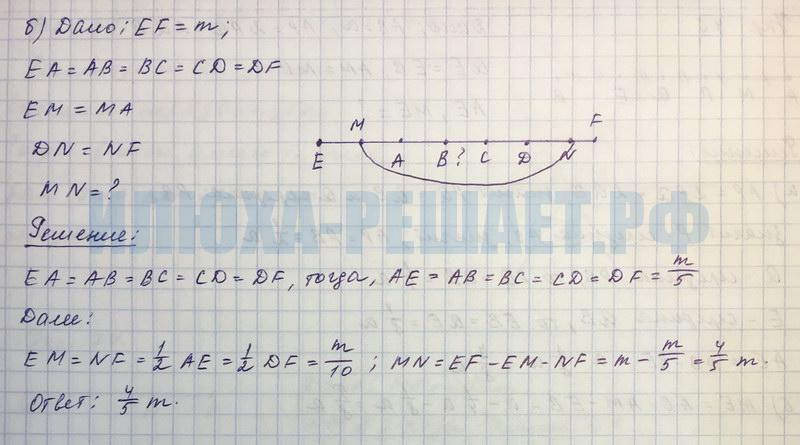 б) Дано: EF = m;
EA = AB = BC = CD = DF
EM = MA
DN = NF
MN = ?
M F
E A B ? C D N
ИЛЮХА-РЕШАЕТ.РФ
Решение:
EA = AB = BC = CD = DF, тогда, AE = AB = BC = CD = DF = m/5
Далее:
EM = NF = 1/2 AE = 1/2 DF = m/10 ; MN = EF - EM - NF = m - m/5 = 4/5 m.
Ответ: 4/5 m.